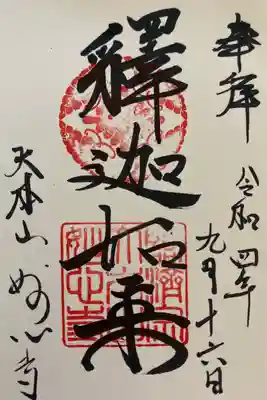 奉拝
令和四年
九月十六日
釋迦如来
大本山妙心寺